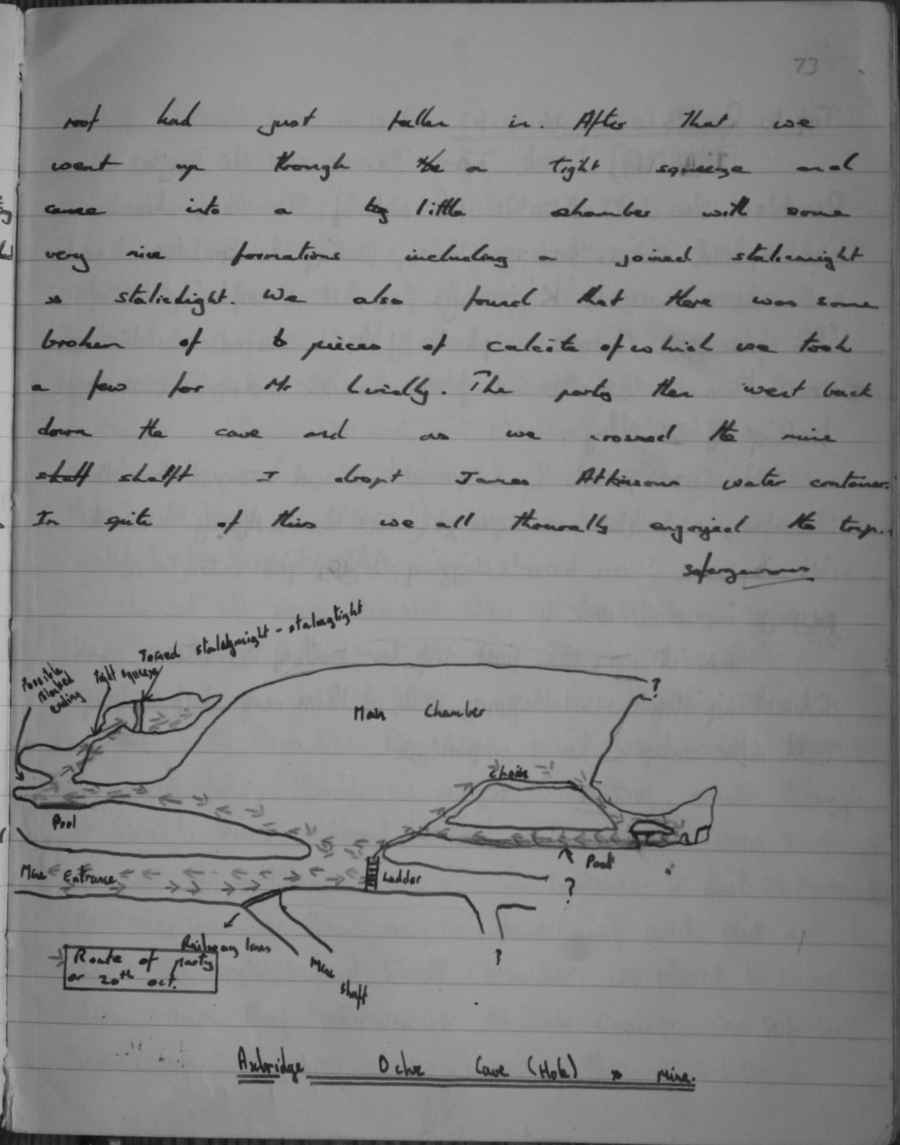 73
roof had just fallen in. After that we
went up through the a tight squeeze and
came into a big little chamber with some
very nice formations including a joined stalicmight
& stalictight. We also found that there was some
broken of b pieces of calcite of which we took
a few for Mr. The party then went back
down the cave and as we crossed the mine
shaff shafft I dropt James Atkinsons water container.
In spite of this we all thourally engoyied the trip.
Possible
Blocked
ending
Tight squeeze
Joined stalagmight - stalagtight
Main Chamber
?
Chain
Pool
Mine Entrance
Ladder
Pool
?
?
Railway lines
Mine
Shaft
Route of party
on 20th oct.
Axbridge Ochre Cave (Hole) & Mine.